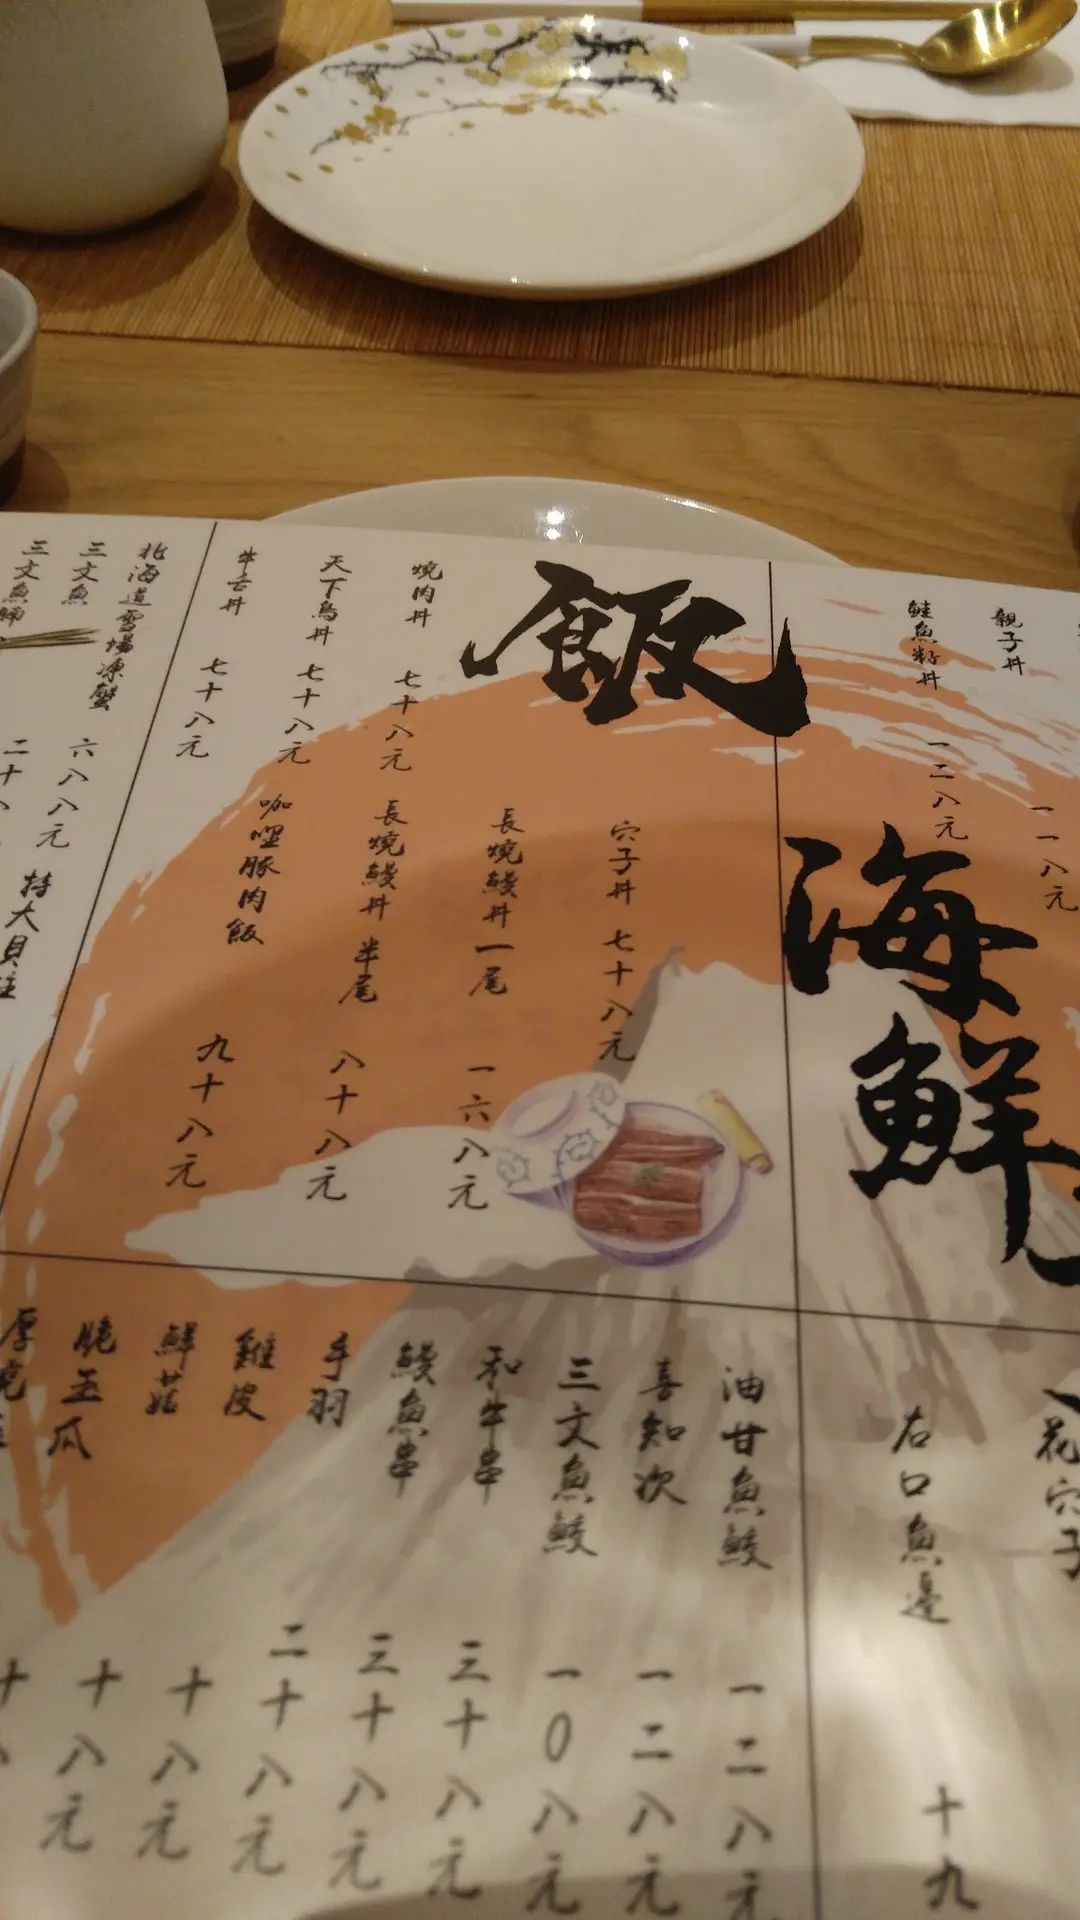 親子丼
一一八元
鮭魚籽丼
一二八元
海鮮
飯
燒肉丼
七十八元
天下鳥丼
七十八元
牛舌丼
七十八元
穴子丼
七十八元
長燒鰻丼 一尾
一六八元
長燒鰻丼 半尾
八十八元
咖哩豚肉飯
九十八元
北海道雪場凍蟹
六八八元
三文魚
三文魚腩
特大貝柱
花穴子
右口魚邊
十九
油甘魚鮫
一二八元
喜知次
一二八元
三文魚鮫
一0八元
和牛串
三十八元
鰻魚串
三十八元
手羽
二十八元
雞皮
十八元
鮮菇
十八元
脆玉瓜